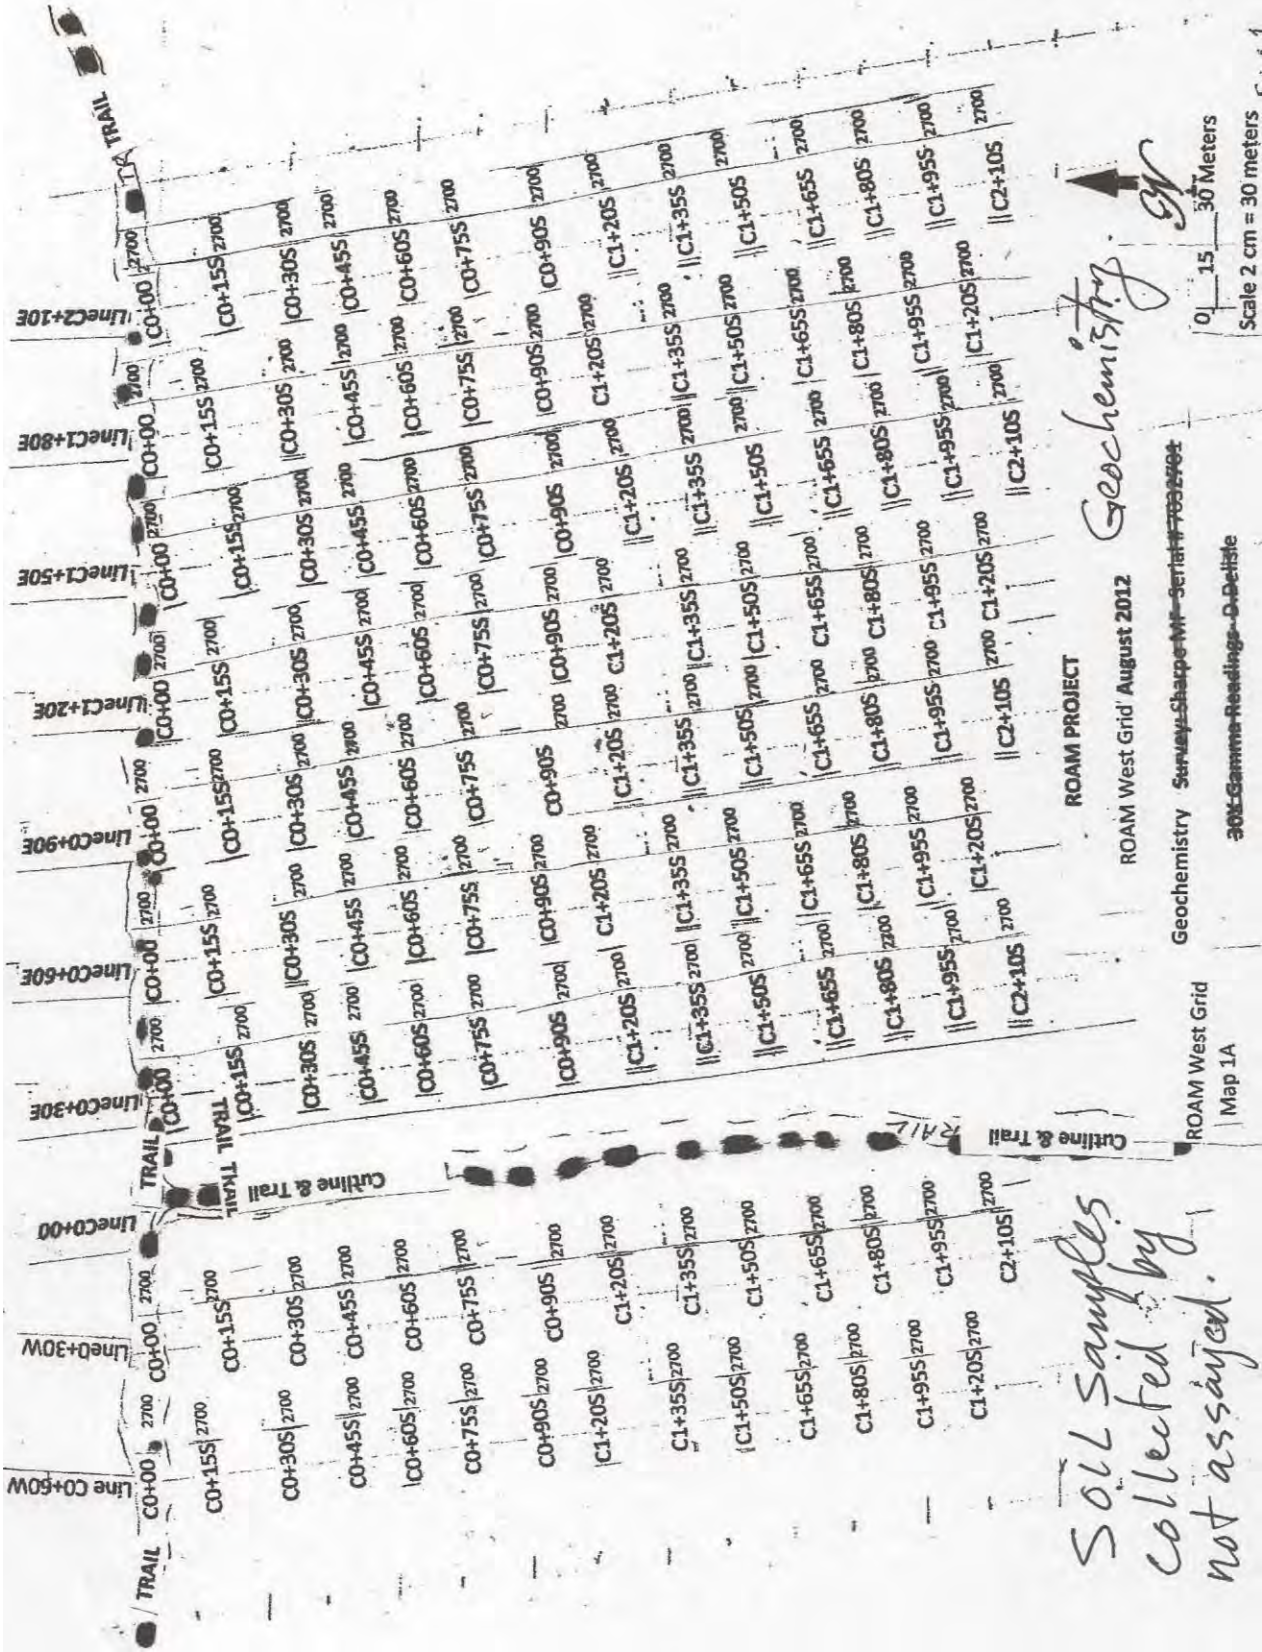 Line C0+60W Line0+30W LineC0+00 LineC0+30E LineC0+60E LineC0+90E LineC1+20E LineC1+50E LineC1+80E LineC2+10E
TRAIL C0+00 2700 C0+00 2700 TRAIL C0+00 2700 C0+00 2700 C0+00 2700 C0+00 2700 C0+00 2700 C0+00 2700 C0+00 2700 TRAIL
C0+15S 2700 C0+15S 2700 TRAIL TRAIL C0+15S 2700 C0+15S 2700 C0+15S 2700 C0+15S 2700 C0+15S 2700 C0+15S 2700 C0+15S 2700
C0+30S 2700 C0+30S 2700 Cutline & Trail C0+30S 2700 C0+30S 2700 C0+30S 2700 C0+30S 2700 C0+30S 2700 C0+30S 2700 C0+30S 2700
C0+45S 2700 C0+45S 2700 C0+45S 2700 C0+45S 2700 C0+45S 2700 C0+45S 2700 C0+45S 2700 C0+45S 2700 C0+45S 2700
C0+60S 2700 C0+60S 2700 C0+60S 2700 C0+60S 2700 C0+60S 2700 C0+60S 2700 C0+60S 2700 C0+60S 2700 C0+60S 2700
C0+75S 2700 C0+75S 2700 C0+75S 2700 C0+75S 2700 C0+75S 2700 C0+75S 2700 C0+75S 2700 C0+75S 2700 C0+75S 2700
C0+90S 2700 C0+90S 2700 C0+90S 2700 C0+90S 2700 C0+90S 2700 C0+90S 2700 C0+90S 2700 C0+90S 2700 C0+90S 2700
C1+20S 2700 C1+20S 2700 C1+20S 2700 C1+20S 2700 C1+20S 2700 C1+20S 2700 C1+20S 2700 C1+20S 2700 C1+20S 2700
C1+35S 2700 C1+35S 2700 C1+35S 2700 C1+35S 2700 C1+35S 2700 C1+35S 2700 C1+35S 2700 C1+35S 2700 C1+35S 2700
C1+50S 2700 C1+50S 2700 C1+50S 2700 C1+50S 2700 C1+50S 2700 C1+50S 2700 C1+50S 2700 C1+50S 2700 C1+50S 2700
C1+65S 2700 C1+65S 2700 C1+65S 2700 C1+65S 2700 C1+65S 2700 C1+65S 2700 C1+65S 2700 C1+65S 2700 C1+65S 2700
C1+80S 2700 C1+80S 2700 C1+80S 2700 C1+80S 2700 C1+80S 2700 C1+80S 2700 C1+80S 2700 C1+80S 2700 C1+80S 2700
C1+95S 2700 C1+95S 2700 RAIL C1+95S 2700 C1+95S 2700 C1+95S 2700 C1+95S 2700 C1+95S 2700 C1+95S 2700 C1+95S 2700
C1+20S 2700 C2+10S 2700 Cutline & Trail C2+10S 2700 C1+20S 2700 C2+10S 2700 C1+20S 2700 C2+10S 2700 C1+20S 2700 C2+10S 2700
ROAM PROJECT
ROAM West Grid' August 2012 Geochemistry.
Geochemistry Survey Sharpe MF- Serial # 7032701
Gamma Readings- D.Delisle
SOIL Samples
collected by
not assayed.
ROAM West Grid
Map 1A
0 15 30 Meters
Scale 2 cm = 30 meters